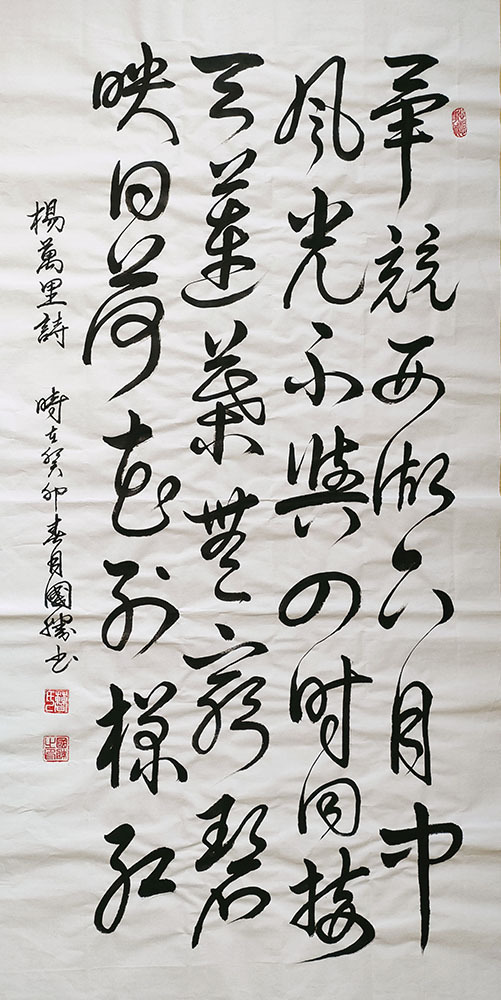 畢競西湖六月中
風光不與四時同接
天蓮葉無窮碧
映日荷花別樣紅
楊萬里詩 時在癸卯春月國勝書